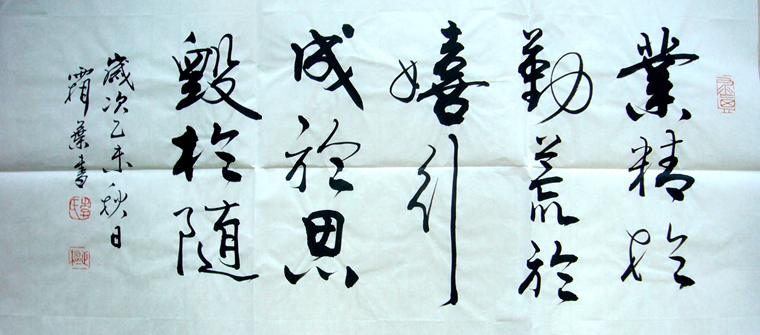 業精於
勤荒於
嬉行
成於思
毀於随
歲次乙未秋日
霜葉書